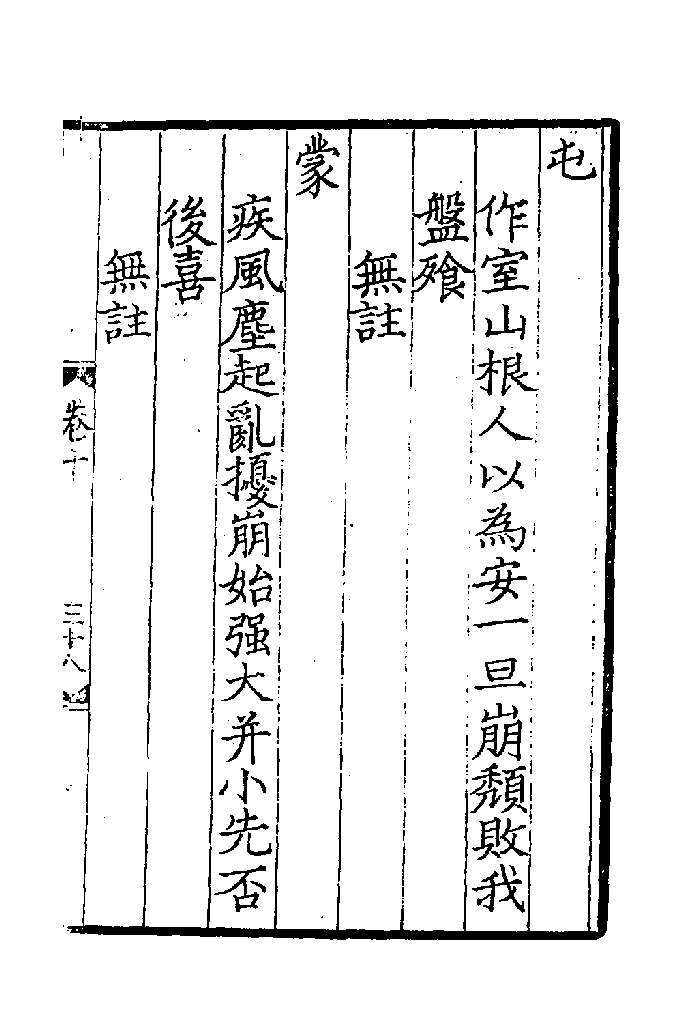 屯
作室山根人以為安一旦崩頽敗我
盤飱
無註
蒙
疾風塵起亂擾崩始强大并小先否
後喜
無註
卷十
三十八